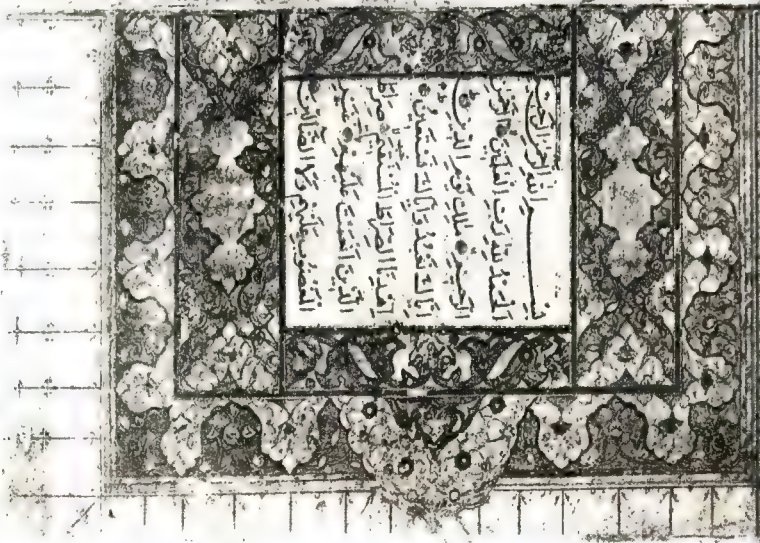 بسم الله الرحمن الرحيم
الحمد لله رب العالمين الرحمن
الرحيم ملك يوم الدين
اياك نعبد واياك نستعين
اهدنا الصراط المستقيم صراط
الذين انعمت عليهم غير
المغضوب عليهم ولا الضالين